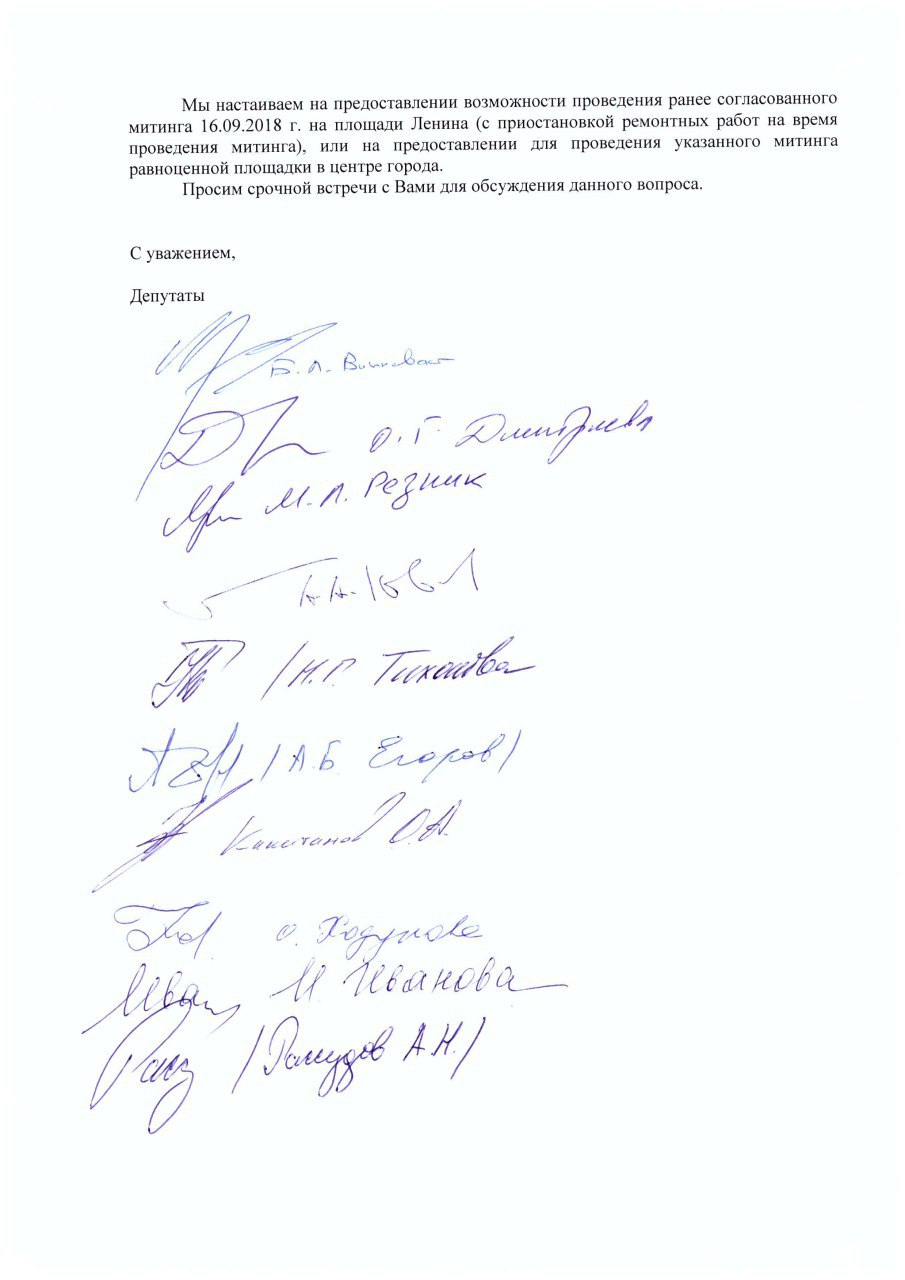 Мы настаиваем на предоставлении возможности проведения ранее согласованного
митинга 16.09.2018 г. на площади Ленина (с приостановкой ремонтных работ на время
проведения митинга), или на предоставлении для проведения указанного митинга
равноценной площадки в центре города.
Просим срочной встречи с Вами для обсуждения данного вопроса.
С уважением,
Депутаты
Б. Л.
О. Г. Дмитриева
М. Л. Резник
/Н. Г. Тихонова
/А. Б. Егоров/
Капитанов О. А.
О. Ходунова
И. Иванова
/Рашудов А. Н./